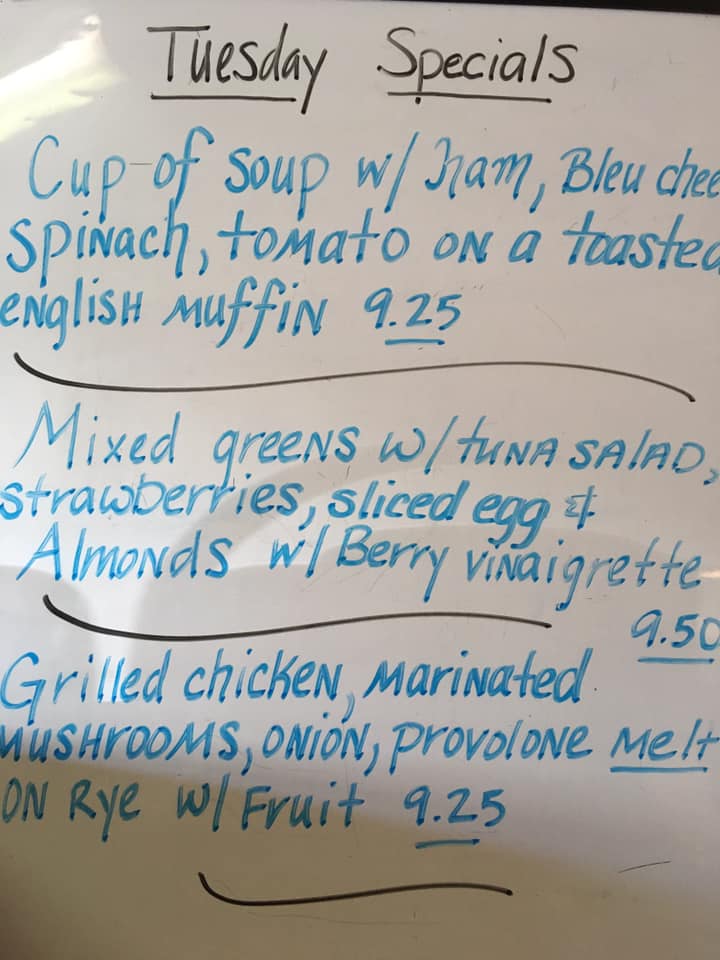 Tuesday Specials
Cup of Soup w/ Ham, Bleu chee
Spinach, tomato on a toasted
english muffin 9.25
Mixed greens w/ tuna salad,
strawberries, sliced egg &
Almonds w/ Berry vinaigrette
9.50
Grilled chicken, marinated
mushrooms, onion, provolone melt
on Rye w/ Fruit 9.25